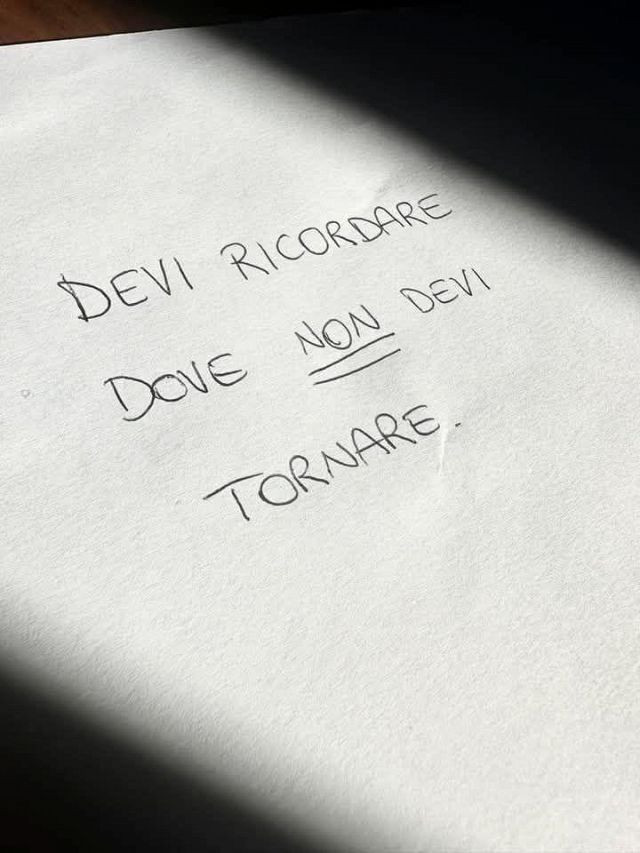 DEVI RICORDARE
DOVE NON DEVI
TORNARE.